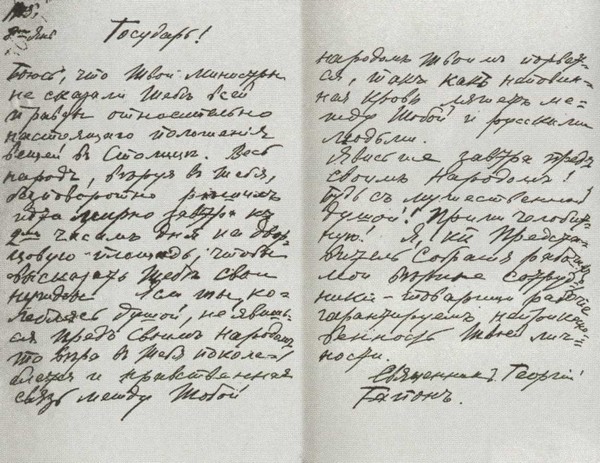 Государь!
Боюсь, что Твои министры
не сказали Тебѣ всей
правды относительно
настоящаго положенія
вещей въ столицѣ. Весь
народъ, вѣруя въ Тебя,
безповоротно рѣшилъ
мирно завтра въ
2 часа дня на двор-
цовую площадь, чтобы
высказать Тебѣ свои
нужды. Если ты, ко-
леблясь душой, не явишь-
ся предъ своимъ народомъ,
то вѣра въ Тебя поколе-
блется и нравственная
связь между Тобой
народомъ твоимъ порвет-
ся, такъ какъ неповин-
ная кровь ляжетъ ме-
жду Тобой и русскими
людьми.
Явись же завтра предъ
своимъ Народомъ!
Будь съ мужественной
душой! Прими челобит-
ную! Я, Предста-
витель Собранія
мои вѣрные сотруд-
ники - товарищи рабочіе
гарантируемъ неприкосно-
венность Твоей лич-
ности.
Священникъ Георгій
Гапонъ.